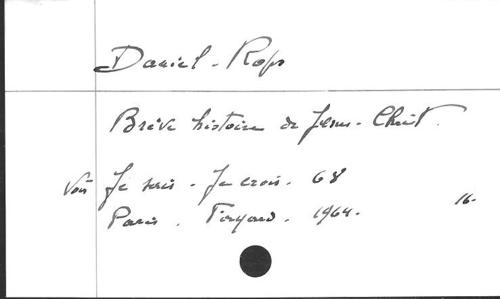 Daniel - Rops
Brève histoire de Jésus - Christ.
Voir Je sais - Je crois. 68
Paris. Fayard. 1964. 16-